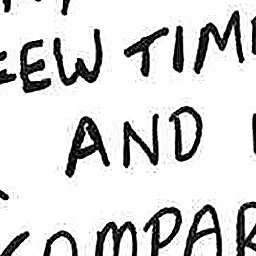 FEW TIM
AND
COMPAR